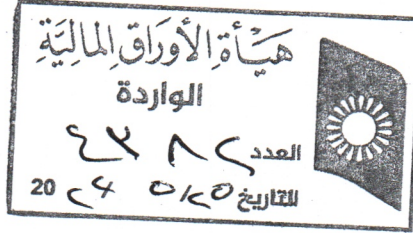 هَيْأَةُ الأَوْرَاقِ المَالِيَّةِ
الواردة
العدد ٤٣٨٢
التاريخ ٥/٢٥ 20٢٤